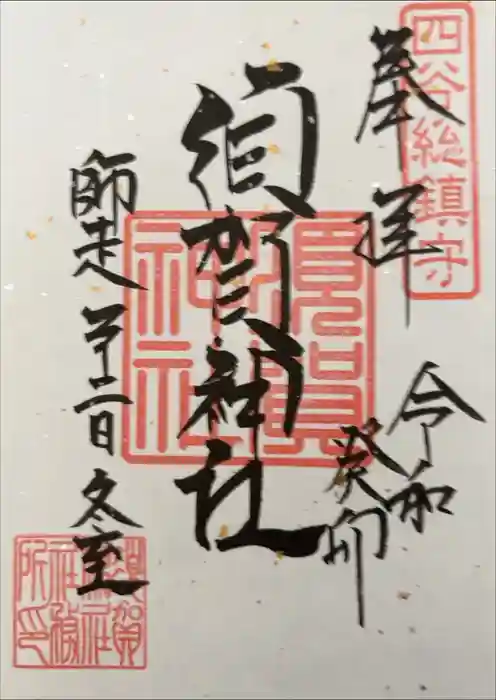 四谷総鎮守
奉拝
令和
癸卯
須賀神社
須賀神社
師走廿二日冬至
須賀神社社務所印